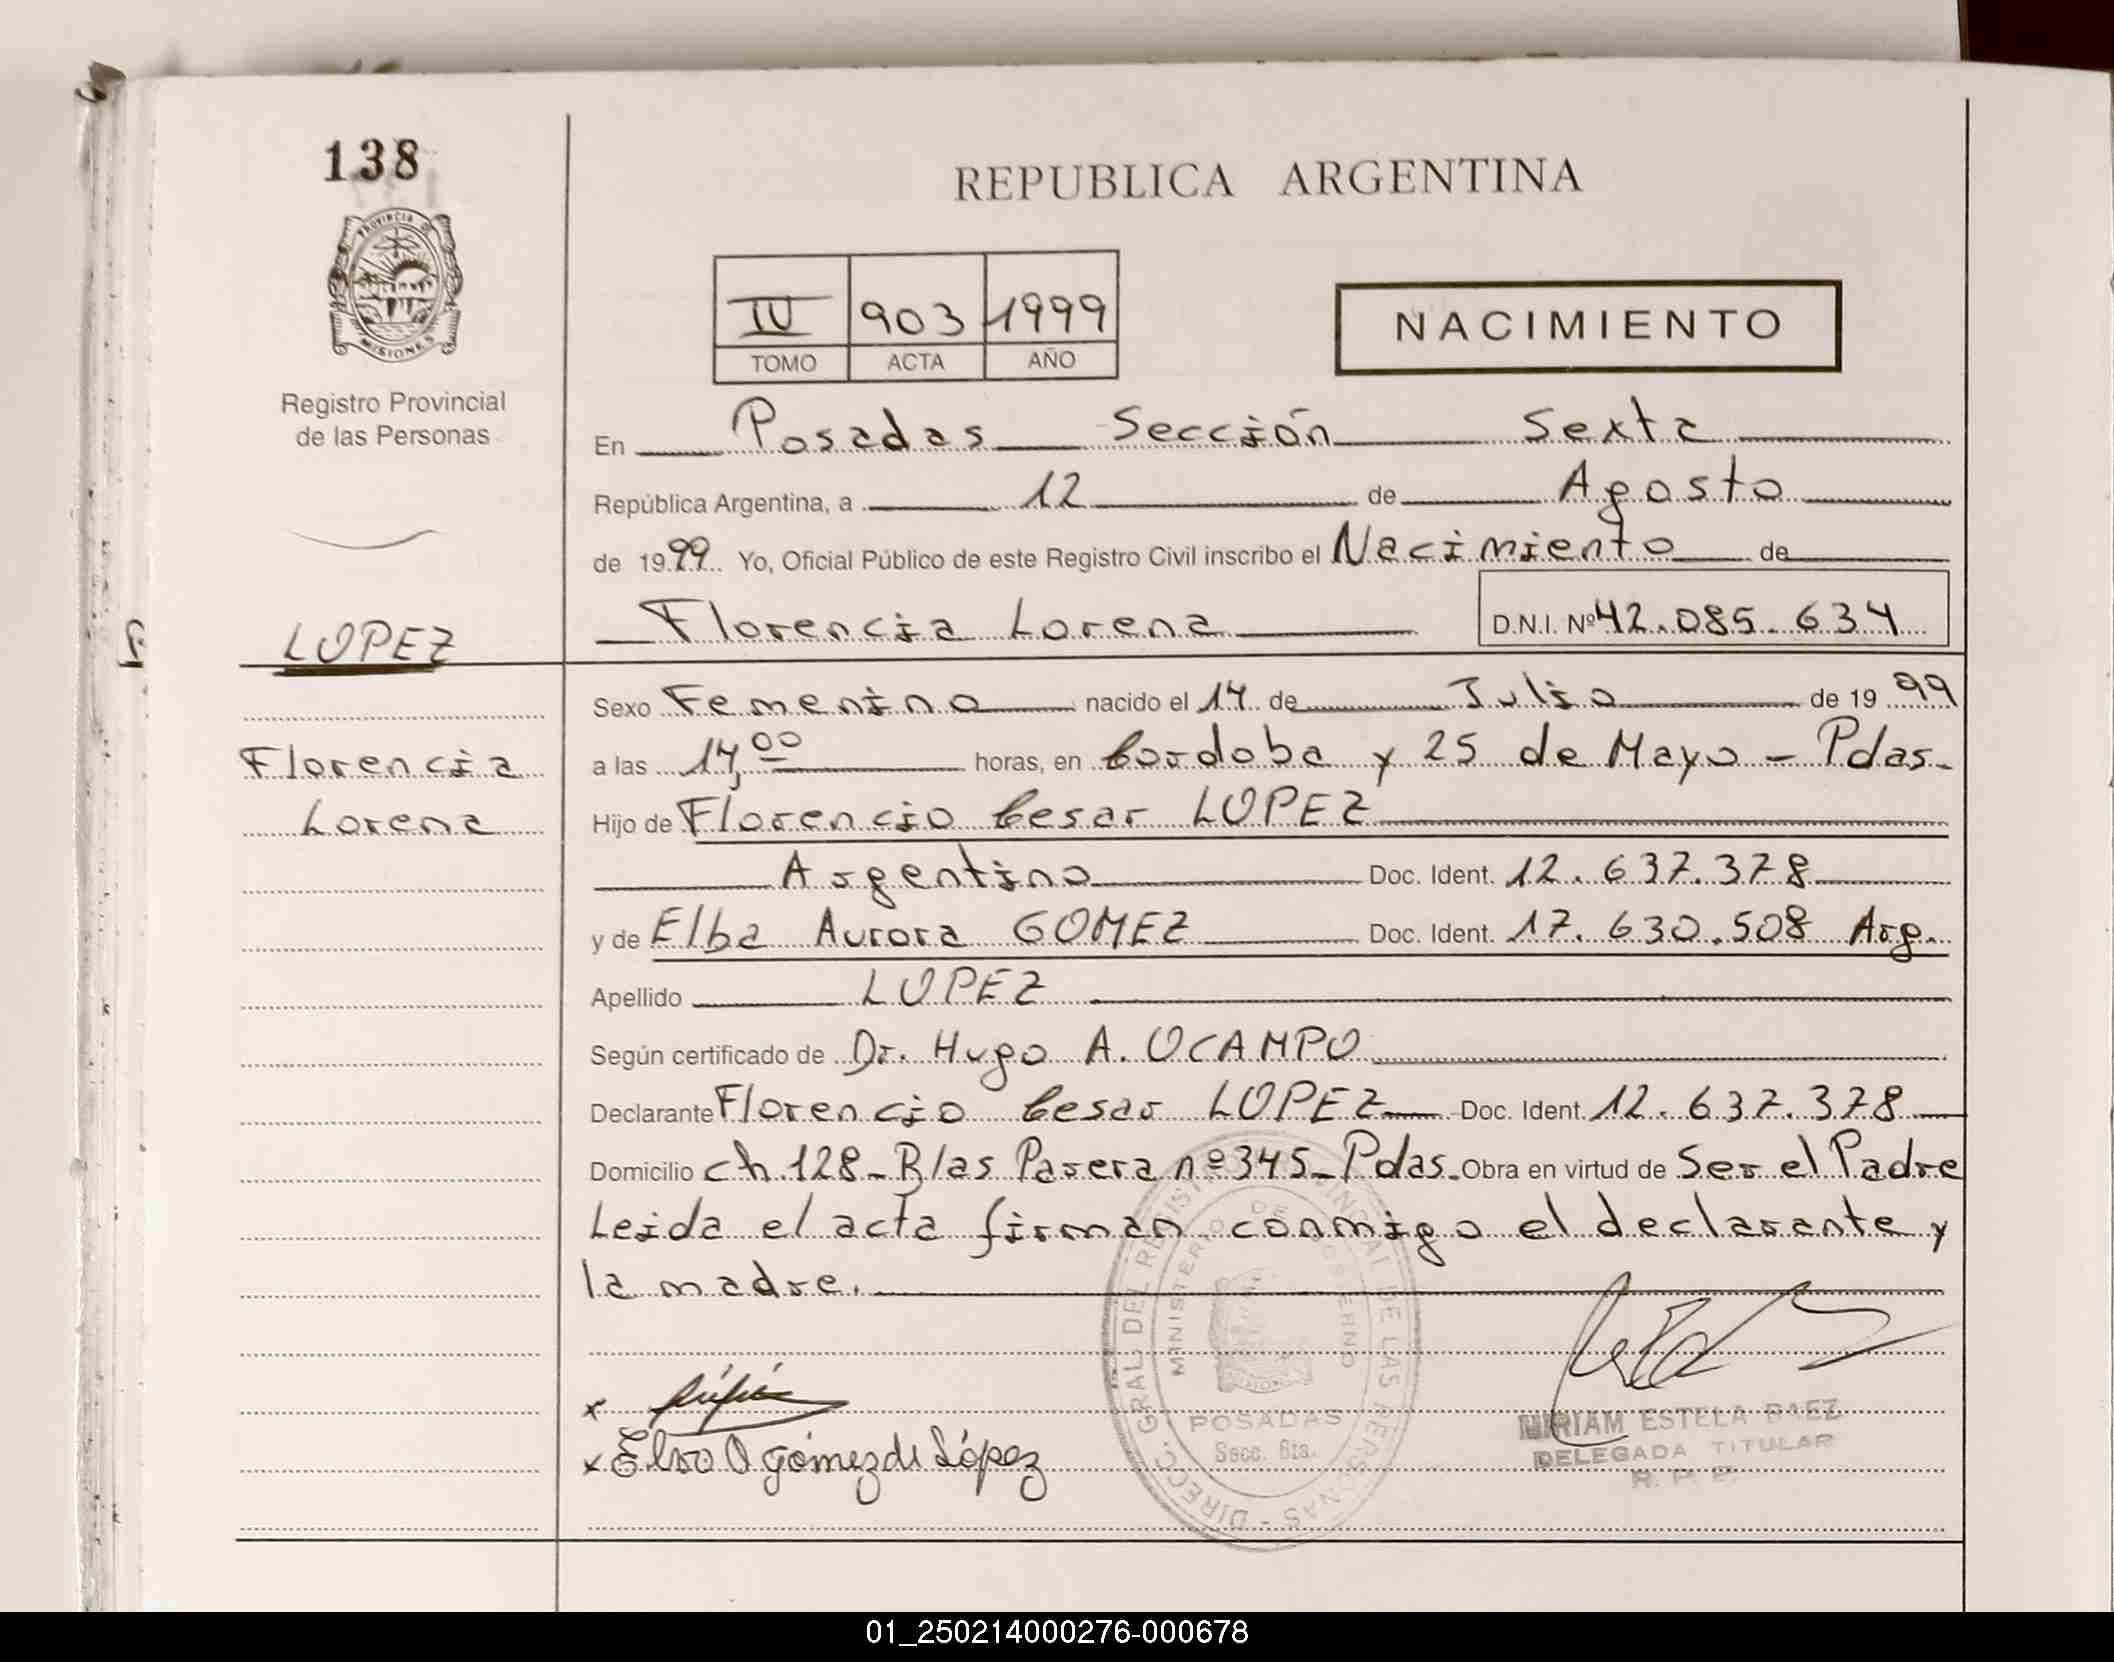 138
PROVINCIA DE
MISIONES
Registro Provincial
de las Personas
REPUBLICA ARGENTINA
IV 903 1999
TOMO ACTA AÑO
NACIMIENTO
En Posadas Sección Sexta
República Argentina, a 12 de Agosto
de 1999 Yo, Oficial Público de este Registro Civil inscribo el Nacimiento de
Florencia Lorena D.N.I. Nº 42.085.634
LOPEZ
Florencia
Lorena
Sexo Femenino nacido el 14 de Julio de 19 99
a las 14,00 horas, en Cordoba y 25 de Mayo - Pdas.
Hijo de Florencio Cesar LOPEZ
Argentino Doc. Ident. 12.637.378
y de Elba Aurora GOMEZ Doc. Ident. 17.630.508 Arg.
Apellido LOPEZ
Según certificado de Dr. Hugo A. OCAMPO
Declarante Florencio Cesar LOPEZ Doc. Ident. 12.637.378
Domicilio ch. 128 - Blas Parera nº 345 - Pdas. Obra en virtud de Ser el Padre
Leida el acta firman conmigo el declarante y
la madre.
Gómez de López
DIRECC. GRAL. DEL REGISTRO PROVINCIAL DE LAS PERSONAS
MINISTERIO DE GOBIERNO
POSADAS
Secc. 6ta.
MIRIAM ESTELA BAEZ
DELEGADA TITULAR
R. P. P.
01_250214000276-000678